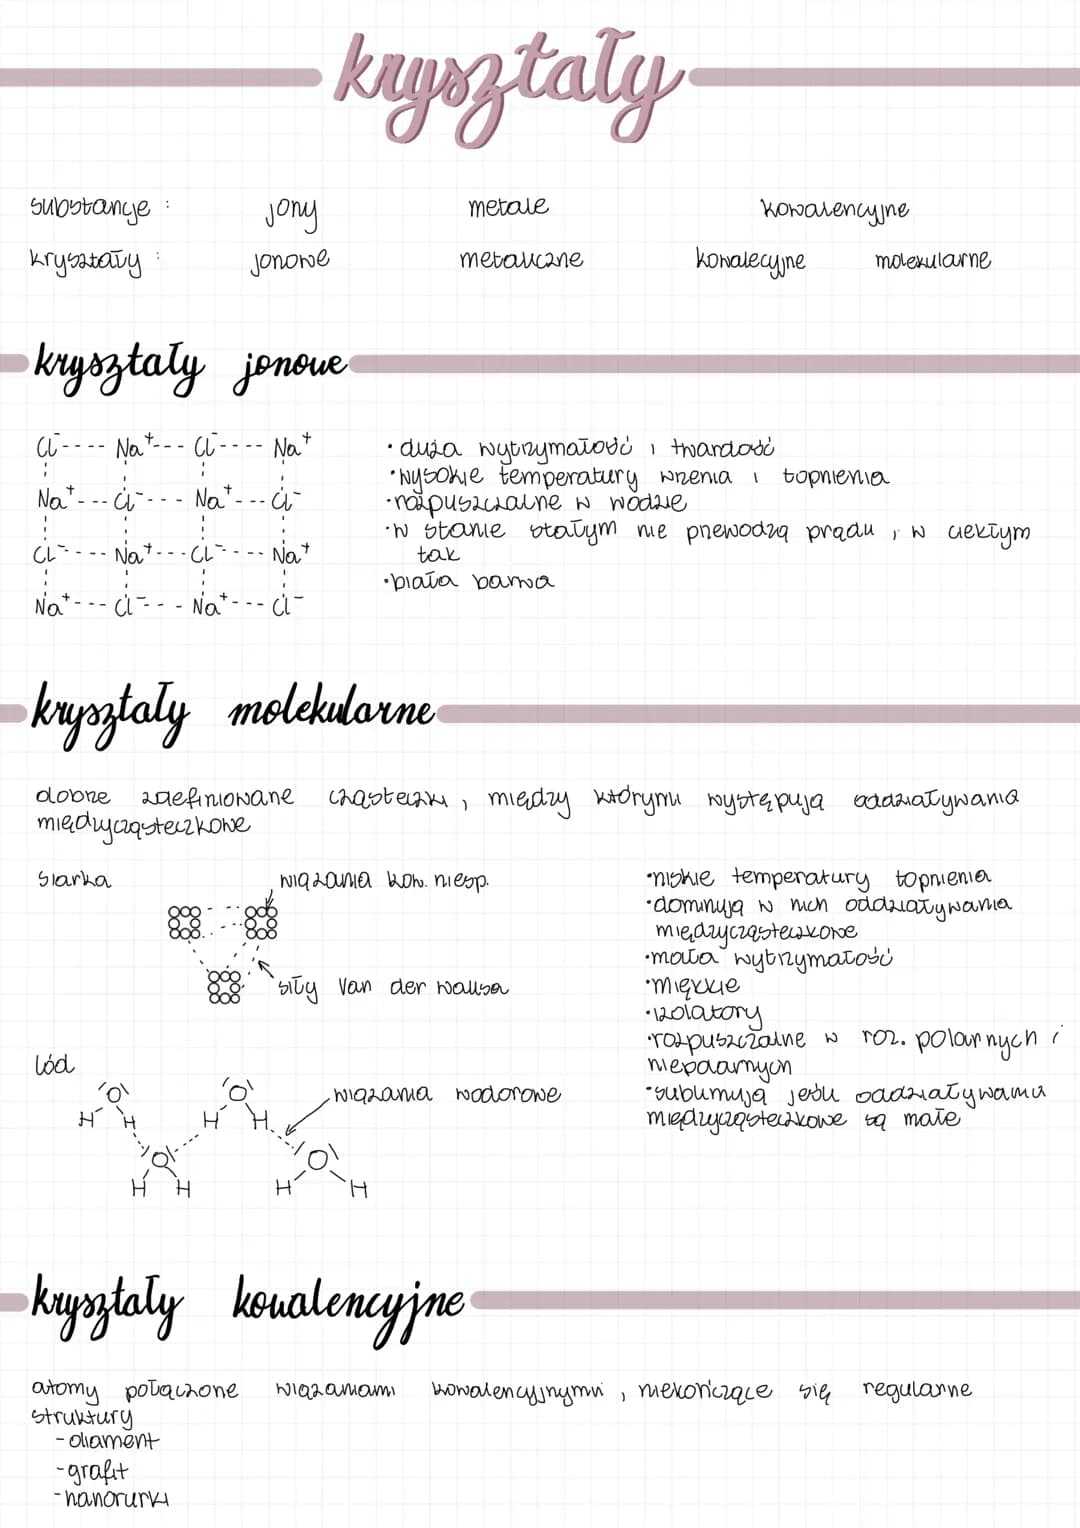 kryształy
substancje : jony metale kowalencyjne
kryształy : jonowe metaliczne kowalecyjne molekularne
kryształy jonowe
Cl⁻---- Na⁺--- Cl⁻---- Na⁺
Na⁺--- Cl⁻--- Na⁺--- Cl⁻
Cl⁻---- Na⁺--- Cl⁻---- Na⁺
Na⁺--- Cl⁻--- Na⁺--- Cl⁻
• duża wytrzymałość i twardość
• wysokie temperatury wrzenia i topnienia
• rozpuszczalne w wodzie
• w stanie stałym nie przewodzą prądu , w ciekłym
tak
• biała barwa
kryształy molekularne
dobrze zdefiniowane cząsteczki , między którymi występują oddziaływania
międzycząsteczkowe
siarka
wiązania kow. niesp.
siły Van der Waalsa
lód
wiązania wodorowe
O O
H H H H
O O
H H H H
• niskie temperatury topnienia
• dominują w nich oddziaływania
międzycząsteczkowe
• mała wytrzymałość
• miękkie
• izolatory
• rozpuszczalne w roz. polarnych i
niepolarnych
• sublimują jeśli oddziaływania
międzycząsteczkowe są małe
kryształy kowalencyjne
atomy połączone wiązaniami kowalencyjnymi , niekończące się regularne
struktury
- diament
- grafit
- nanorurki